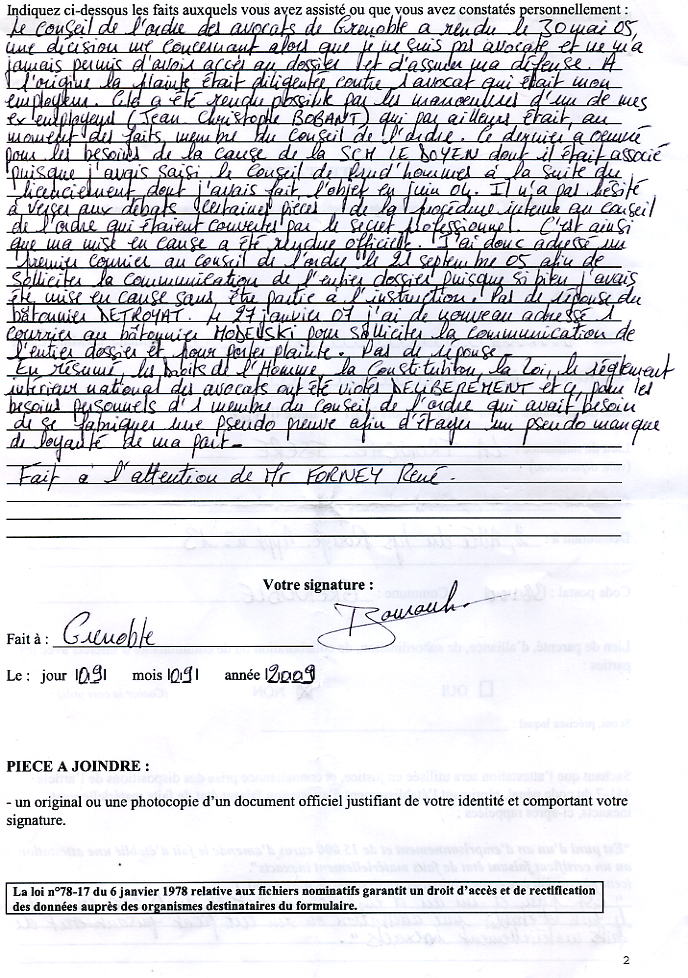 Indiquez ci-dessous les faits auxquels vous avez assisté ou que vous avez constatés personnellement :
Le Conseil de l'ordre des avocats de Grenoble a rendu le 30 mai 05,
une décision me concernant alors que je ne suis pas avocate et ne m'a
jamais permis d'avoir accès au dossier et d'assurer ma défense. A
l'origine la plainte était diligentée contre l'avocat qui était mon
employeur. Cela a été rendu possible par les manoeuvres d'un de mes
ex employeurs (Jean Christophe BOBANT) qui par ailleurs était, au
moment des faits, membre du Conseil de l'ordre. Ce dernier a oeuvré
pour les besoins de la cause de la SCM LE DOYEN dont il était associé
puisque j'avais saisi le Conseil de Prud'hommes à la suite du
licenciement dont j'avais fait l'objet en juin 04. Il n'a pas hésité
à verser aux débats certaines pièces de la procédure interne au conseil
de l'ordre qui étaient couvertes par le secret professionnel. C'est ainsi
que ma mise en cause a été rendue officielle. J'ai donc adressé un
premier courrier au Conseil de l'ordre le 21 septembre 05 afin de
solliciter la communication de l'entier dossier puisque si bien j'avais
été mise en cause sans être partie à l'instruction. Pas de réponse du
bâtonnier DETROYAT. Le 27 janvier 07 j'ai de nouveau adressé 1
courrier au bâtonnier MODELSKI pour solliciter la communication de
l'entier dossier et pour porter plainte. Pas de réponse.
En résumé, les Droits de l'Homme, la Constitution, la Loi, le règlement
intérieur national des avocats ont été violés DELIBEREMENT et ç, pour les
besoins personnels d'1 membre du Conseil de l'ordre qui avait besoin
de se fabriquer une pseudo preuve afin d'étayer un pseudo manque
de loyauté de ma part.
Fait à l'attention de Mr FORNEY René.
Votre signature :
Fait à : Grenoble
Le : jour |09| mois |09| année |2009
PIECE A JOINDRE :
- un original ou une photocopie d'un document officiel justifiant de votre identité et comportant votre
signature.
La loi n°78-17 du 6 janvier 1978 relative aux fichiers nominatifs garantit un droit d'accès et de rectification
des données auprès des organismes destinataires du formulaire.
2